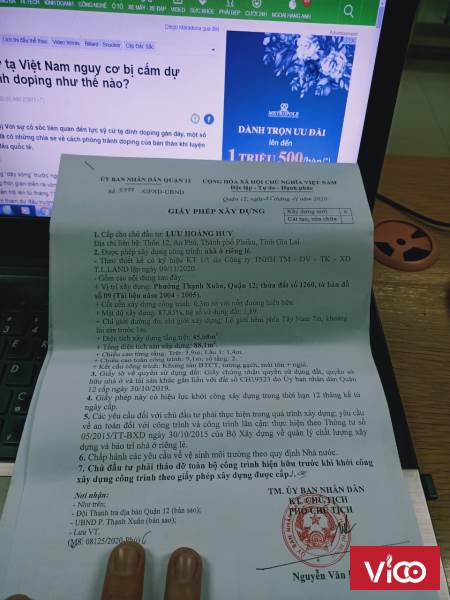 KINH DOANH
CÔNG NGHỆ
Ô TÔ
XE MÁY - XE ĐẠP
VIDEO
SỨC KHỎE
PHÁI ĐẸP
CƯỜI 24H
NGOẠI HẠNG ANH
Advertisement
Lịch thi đấu thể thao
Video tennis
Billard - Snooker
tạ Việt Nam nguy cơ bị cấm dự
doping như thế nào?
METROPOLE
DÀNH TRỌN ƯU ĐÃI
lên đến
1 TRIỆU 500/bàn(*)
ỦY BAN NHÂN DÂN QUẬN 12
CỘNG HÒA XÃ HỘI CHỦ NGHĨA VIỆT NAM
Độc lập - Tự do - Hạnh phúc
/GPXD-UBND
GIẤY PHÉP XÂY DỰNG
Xây dựng mới x
Cải tạo, sửa chữa
1. Cấp cho chủ đầu tư: LƯU HOÀNG HUY
Địa chỉ liên hệ: Thôn 12, An Phú, Thành phố Pleiku, Tỉnh Gia Lai.
2. Được phép xây dựng công trình: nhà ở riêng lẻ.
- Theo thiết kế có ký hiệu KT 1/1 do Công ty TNHH TM - DV - TK - XD
T.L.LAND lập ngày 09/11/2020.
- Gồm các nội dung sau đây:
+ Vị trí xây dựng: Phường Thạnh Xuân, Quận 12; thửa đất số 1260, tờ bản đồ
số 09 (Tài liệu năm 2004 - 2005).
+ Cốt nền xây dựng công trình: 0,3m so với mặt đường hiện hữu.
+ Mật độ xây dựng: 87,85%, hệ số sử dụng đất: 1,69.
+ Chỉ giới đường đỏ, chỉ giới xây dựng: Lộ giới hẻm phía Tây Nam 7m, khoảng
lùi sân trước
+ Diện tích xây dựng tầng trệt: 45,68m²
+ Tổng diện tích sàn xây dựng: 88,1m²
+ Chiều cao từng tầng: Trệt: 3,9m; Lầu 1: 3,4m.
+ Chiều cao toàn công trình: 9,1m, số tầng: 2.
+ Kết cấu công trình: Khung sàn BTCT, tường gạch, mái tôn + ngói.
3. Giấy tờ về quyền sử dụng đất: Giấy chứng nhận quyền sử dụng đất, quyền sở
hữu nhà ở và tài sản khác gắn liền với đất số CH19323 do Ủy ban nhân dân Quận
12 cấp ngày 30/10/2019.
4. Giấy phép này có hiệu lực khởi công xây dựng trong thời hạn 12 tháng kể từ
ngày cấp.
5. Các yêu cầu đối với chủ đầu tư phải thực hiện trong quá trình xây dựng; yêu cầu
về an toàn đối với công trình và công trình lân cận: thực hiện theo Thông tư số
05/2015/TT-BXD ngày 30/10/2015 của Bộ Xây dựng về quản lý chất lượng xây
dựng và bảo trì nhà ở riêng lẻ.
6. Chấp hành các yêu cầu về vệ sinh môi trường theo quy định Nhà nước.
7. Chủ đầu tư phải tháo dỡ toàn bộ công trình hiện hữu trước khi khởi công
xây dựng công trình theo giấy phép xây dựng được cấp.
Nơi nhận:
- Như trên;
- Đội Thanh tra địa bàn Quận 12 (bản sao);
- UBND P. Thạnh Xuân (bản sao);
- Lưu VT.
(MS: 08125/2020-
TM. ỦY BAN NHÂN DÂN
KT. CHỦ TỊCH
PHÓ CHỦ TỊCH
Nguyễn Văn
Vico